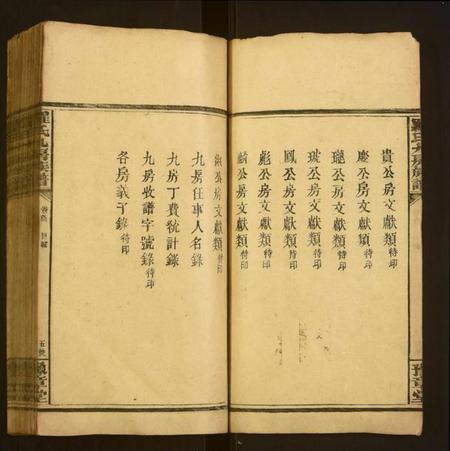 貴公房文獻類待印
慶公房文獻類待印
璁公房文獻類待印
珑公房文獻類待印
鳳公房文獻類待印
彪公房文獻類待印
麟公房文獻類待印
公房文獻類待印
九房任事人名錄
九房丁費統計錄
九房收譜字號錄待印
各房義子錄待印
羅氏九房族譜
卷首
目錄
豫章堂
羅氏九房族譜
豫章堂